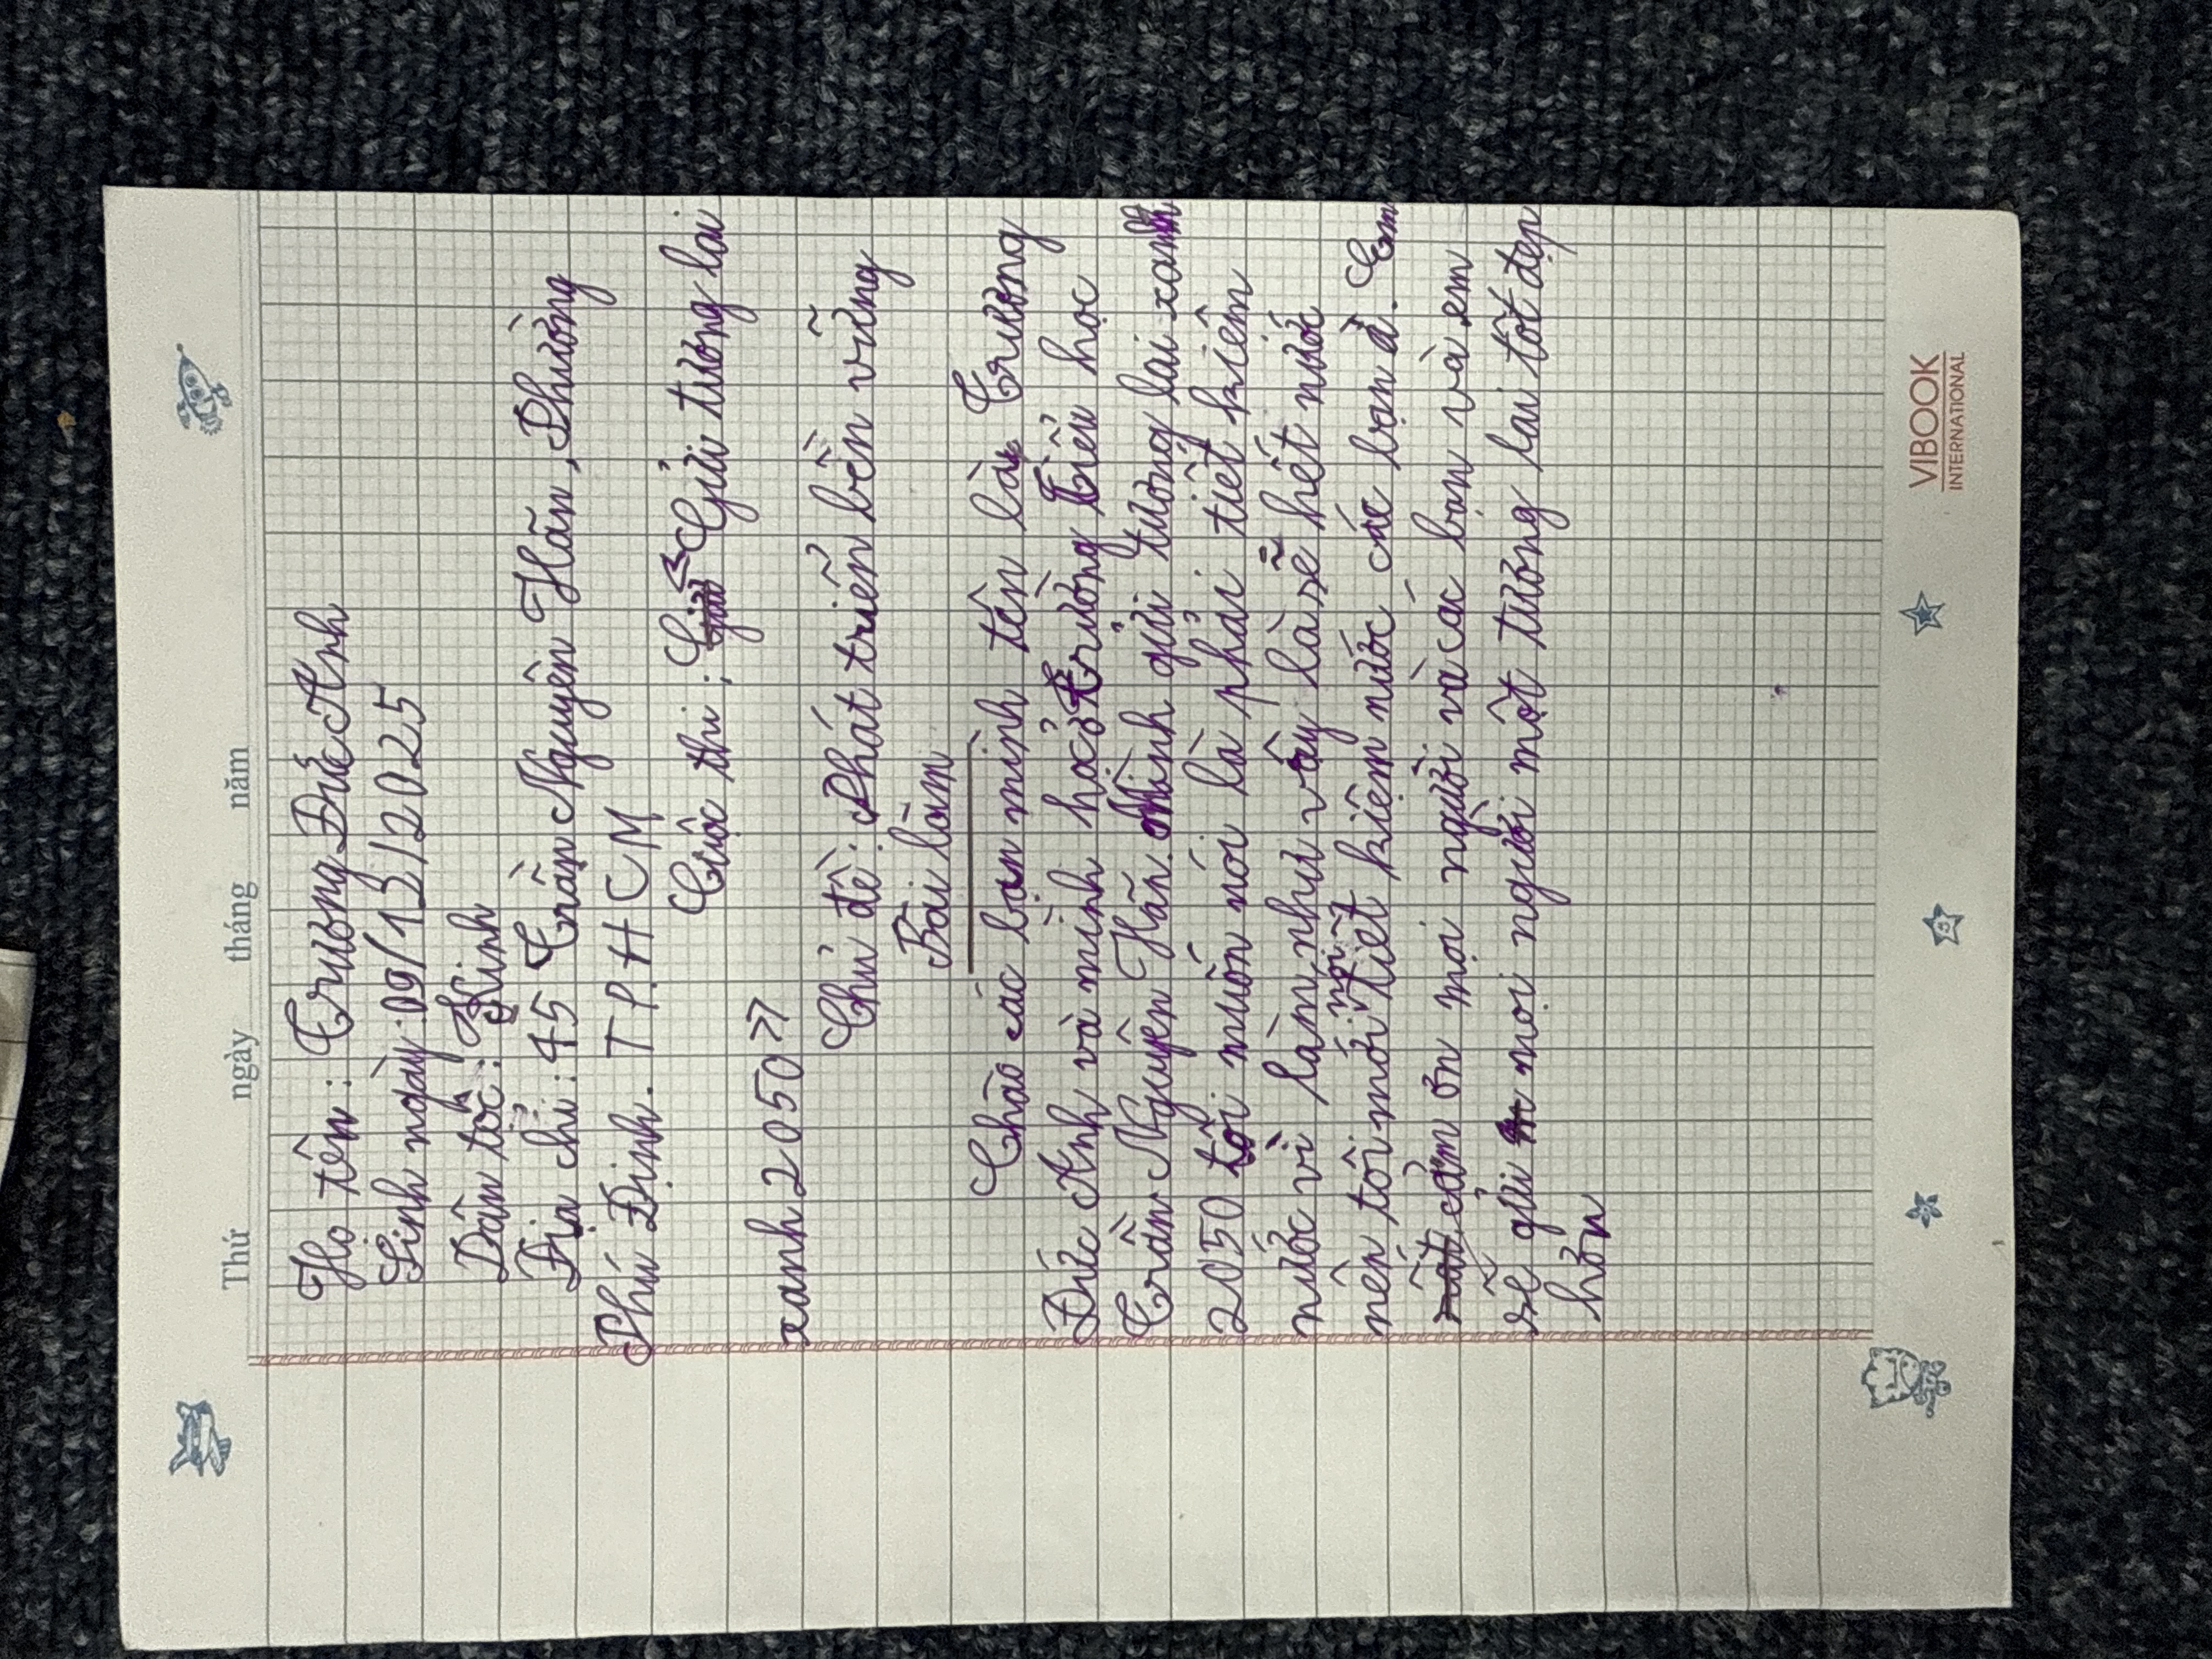 Thứ ngày tháng năm
Họ tên: Trương Đức Anh
Sinh ngày: 09/13/2025
Dân tộc: Kinh
Địa chỉ: 45 Trần Nguyên Hãn, Phường
Phú Định. T P. H C M
Cuộc thi: << Gửi tương lai
xanh 2050 >>
Chủ đề: Phát triển bền vững
Bài làm
Chào các bạn mình tên là Trương
Đức Anh và mình Trường Tiểu học
Trần Nguyên Hãn. Mình gửi tương lai xanh
2050 tôi muốn nói là phải tiết kiệm
nước vì làm như vậy là sẽ hết nước
nên tôi mới nói tiết kiệm nước các bạn ạ. Em
cảm ơn mọi người và các bạn và em
sẽ gửi mọi người một tương lai tốt đẹp
hơn
VIBOOK
INTERNATIONAL